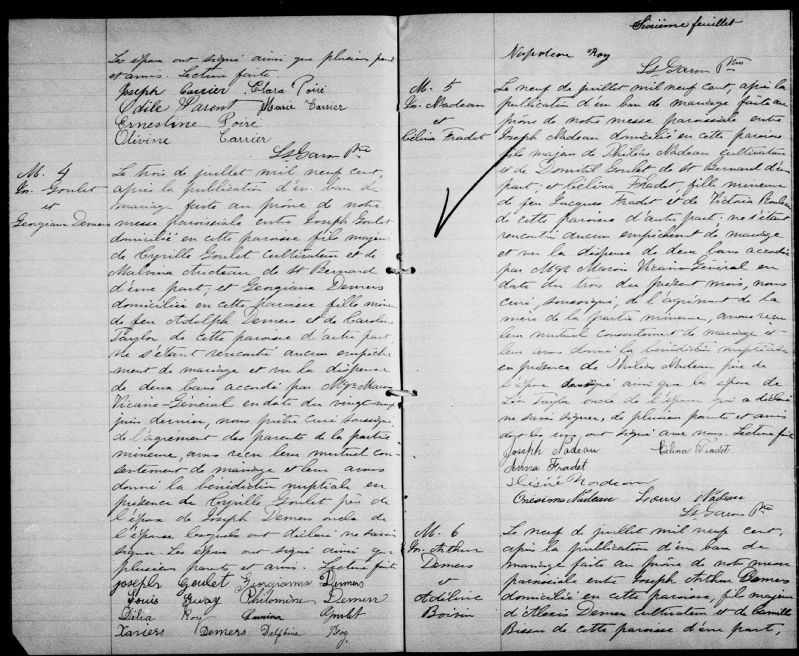 Les époux ont signé ainsi que plusieurs parents
et amis. Lecture faite.
Joseph Carrier Clara Poiré
Odile Marie Carrier
Ernestine Poiré
Olivine Carrier
Ptre
M. 4
Jos. Goulet
et
Georgiana Demers
Le trois de juillet mil neuf cent,
après la publication d'un ban de
mariage faite au prône de notre
messe paroissiale entre Joseph Goulet
domicilié en cette paroisse fils majeur
de Cyrille Goulet cultivateur et de
Malvina de St Bernard
d'une part, et Georgiana Demers
domiciliée en cette paroisse fille mineure
de feu Adolph Demers et de Caroline
Taylor de cette paroisse d'autre part
ne s'étant rencontré aucun empêche
ment de mariage et vu la dispense
de deux bans accordé par Mgr Marois
Vicaire-Général en date du vingt-neuf
juin dernier, nous prêtre curé soussigné,
de l'agrément des parents de la partie
mineure, avons reçu leur mutuel con-
sentement de mariage et leur avons
donné la bénédiction nuptiale en
présence de Cyrille Goulet père de
l'époux de Joseph Demers oncle de
l'épouse lesquels ont déclaré ne savoir
signer. Les époux ont signé ainsi que
plusieurs parents et amis. Lecture faite
Joseph Goulet Georgianna Demers
Louis Philomène Demers
Délia Roy Goulet
Xaviers Demers Delphine Roy
Sixième feuillet
Napoléon Roy
Ptre
M. 5
Jos. Nadeau
et
Célina Fradet
Le neuf de juillet mil neuf cent, après la
publication d'un ban de mariage faite au
prône de notre messe paroissiale entre
Joseph Nadeau domicilié en cette paroisse
fils majeur de Philias Nadeau cultivateur
et de Domitil Goulet de St Bernard d'une
part; et Célina Fradet, fille mineure
de feu Jacques Fradet et de Victoria
de cette paroisse d'autre part; ne s'étant
rencontré aucun empêchement de mariage
et vu la dispense de deux bans accordée
par Mgr Marois Vicaire Général en
date du trois du présent mois, nous
curé, soussigné, de l'agrément de la
mère de la partie mineure, avons reçu
leur mutuel consentement de mariage et
leur avons donné la bénédiction nuptiale
en présence de Philias Nadeau père de
l'époux ainsi que
Taylor oncle de l'épouse qui a déclaré
ne savoir signer, de plusieurs parents et amis
dont les uns ont signé avec nous. Lecture faite
Joseph Nadeau Célina Fradet
Anna Fradet
Désiré Nadeau
Onésime Nadeau Louis Nadeau
Ptre
M. 6
Jos. Arthur
Demers
et
Adéline
Boivin
Le neuf de juillet mil neuf cent,
après la publication d'un ban de
mariage faite au prône de notre messe
paroissiale entre Joseph Arthur Demers
domicilié en cette paroisse, fils majeur
d'Alexis Demers cultivateur et de Camille
de cette paroisse d'une part,